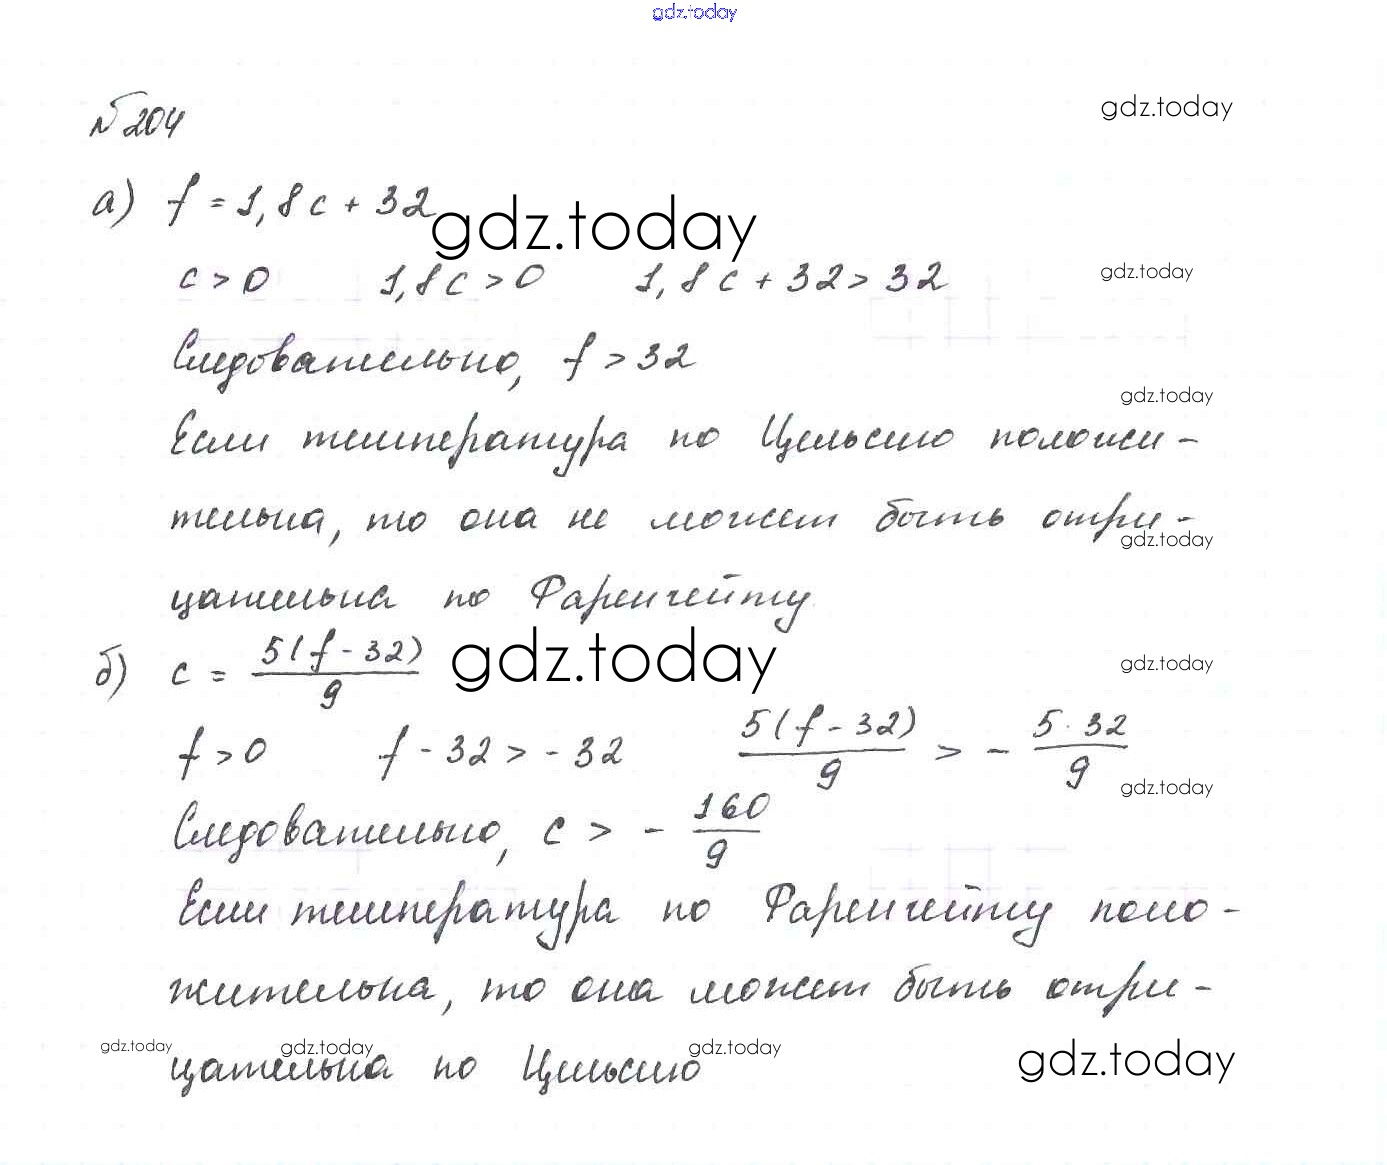 gdz.today
№ 204
gdz.today
а) f = 1,8c + 32
gdz.today
c > 0 1,8c > 0 1,8c + 32 > 32
gdz.today
Следовательно, f > 32
gdz.today
Если температура по Цельсию положи-
тельна, то она не может быть отри-
gdz.today
цательна по Фаренгейту
б) c = 5(f - 32)/9
gdz.today
gdz.today
f > 0 f - 32 > - 32 5(f - 32)/9 > - 5·32/9
gdz.today
Следовательно, c > - 160/9
Если температура по Фаренгейту поло-
жительна, то она может быть отри-
gdz.today gdz.today gdz.today gdz.today
цательна по Цельсию